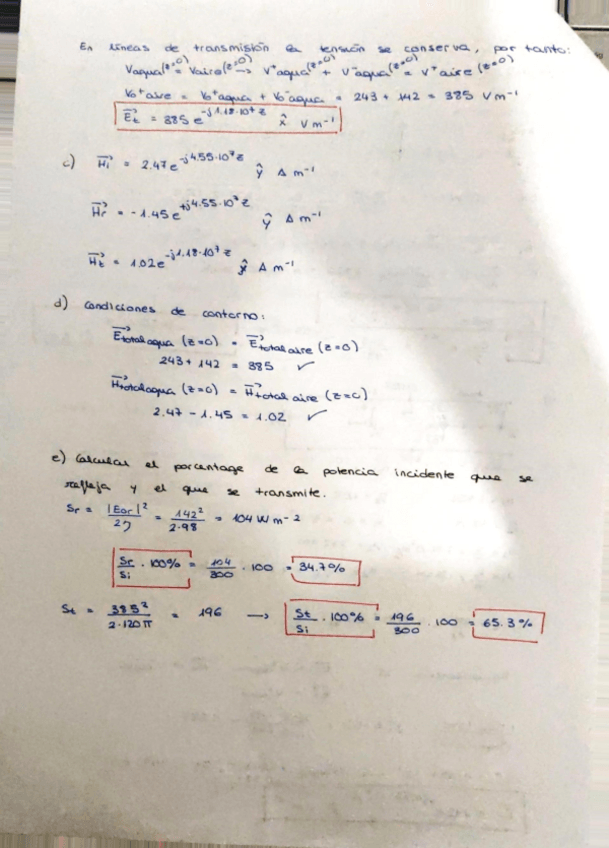 En líneas de transmisión la tensión se conserva, por tanto:
Vagua(z=0) = Vaire(z=0) → V⁺agua(z=0) + V⁻agua(z=0) = V⁺aire(z=0)
V₀⁺aire = V₀⁺agua + V₀⁻agua = 243 + 142 = 385 V m⁻¹
E⃗t = 385 e^(-j1.18·10⁷z) x̂ V m⁻¹
c) H⃗i = 2.47 e^(-j4.55·10⁷z) ŷ A m⁻¹
H⃗r = -1.45 e^(+j4.55·10⁷z) ŷ A m⁻¹
H⃗t = 1.02 e^(-j1.18·10⁷z) ŷ A m⁻¹
d) Condiciones de contorno:
E⃗total agua (z=0) = E⃗total aire (z=0)
243 + 142 = 385 ✓
H⃗total agua (z=0) = H⃗total aire (z=0)
2.47 - 1.45 = 1.02 ✓
e) Calcular el porcentage de la potencia incidente que se
refleja y el que se transmite.
Sr = |Eor|²/2η = 142²/2·98 = 104 W m⁻²
Sr/Si · 100% = 104/300 · 100 = 34.7%
St = 385²/2·120π = 196 → St/Si · 100% = 196/300 · 100 = 65.3%